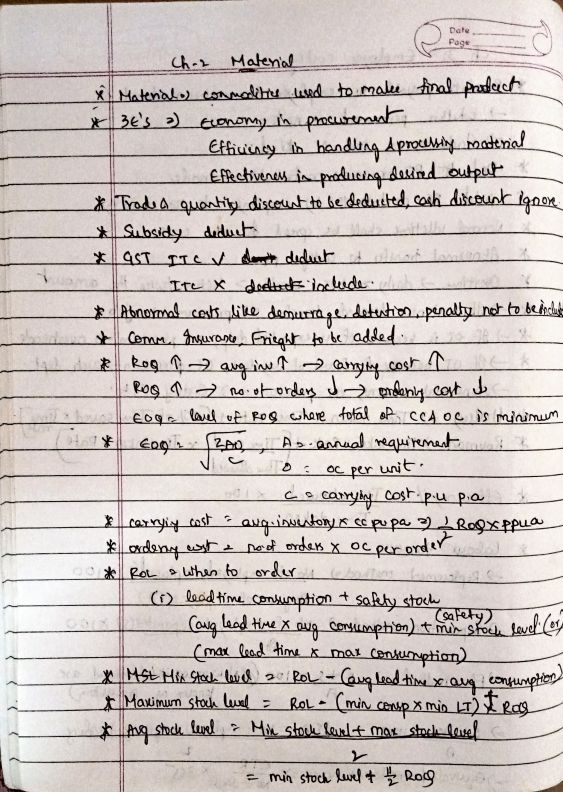 Date
Page
Ch-2 Material
* Material => commodities used to make final product
* 3E's => Economy in procurement
Efficiency in handling & processing material
Effectiveness in producing desired output
* Trade & quantity discount to be deducted, cash discount ignore
* Subsidy deduct
* GST ITC ✓ deduct
ITC × include.
* Abnormal costs, like demurrage, detention, penalty not to be include
* Comm, Insurance, Frieght to be added.
* ROQ ↑ → avg inv ↑ → carrying cost ↑
ROQ ↑ → no. of orders ↓ → ordering cost ↓
EOQ = level of ROQ where total of CC & OC is minimum
* EOQ = √2AO/C, A = annual requirement
O = OC per unit.
C = carrying cost p.u p.a
* carrying cost = avg. inventory × cc pu pa => 1/2 ROQ × ppua
* ordering cost = no. of orders × OC per order
* ROL = When to order
(i) lead time consumption + safety stock
(avg lead time × avg consumption) + min stock level (safety) (or)
(max lead time × max consumption)
* MSL Min Stock level = ROL - (avg lead time × avg consumption)
* Maximum stock level = ROL - (min consp × min LT) + ROQ
* Avg stock level = Min stock level + max stock level
2
= min stock level + 1/2 ROQ